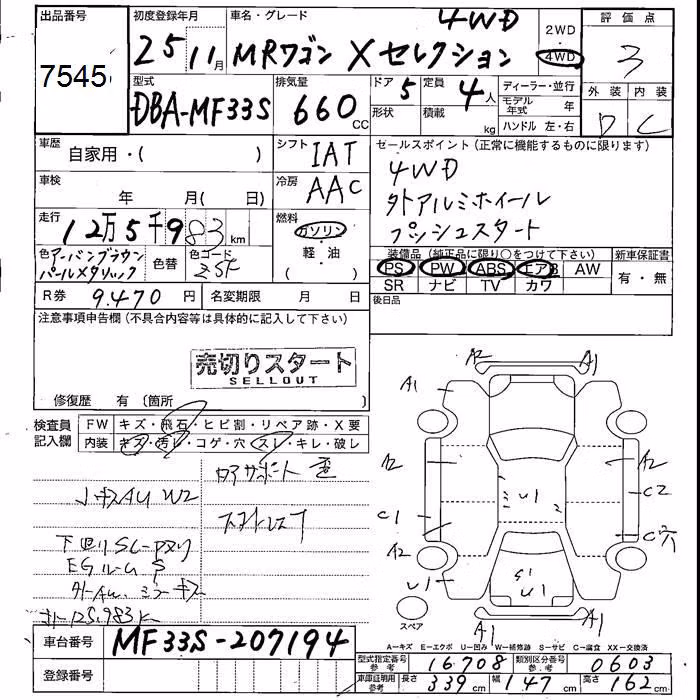 出品番号
7545
初度登録年月
25 11月
車名・グレード
4WD
MRワゴン Xセレクション
2WD
4WD
評価点
3
外装 内装
D C
型式
DBA-MF33S
排気量
660 CC
ドア 5
形状
定員 4人
積載 kg
ディーラー・並行
モデル年式 年
ハンドル 左・右
車歴
自家用・( )
シフト
IAT
セールスポイント(正常に機能するものに限ります)
4WD
外アルミホイール
プッシュスタート
車検
年 月( 日)
冷房
AAC
走行
12万5千983 km
燃料
ガソリン
軽・油
( )
色 アーバンブラウン
パールメタリック
色替
色コード
ZSF
装備品(純正品に限り○をつけて下さい)
PS PW ABS エアB AW
SR ナビ TV カワ
新車保証書
有・無
R券 9.470 円
名変期限 月 日
後日品
注意事項申告欄(不具合内容等は具体的に記入して下さい)
売切りスタート
SELLOUT
修復歴 有〔箇所
検査員
記入欄
FW キズ・飛石・ヒビ割・リペア跡・X要
内装 キズ・汚レ・コゲ・穴・スレ・キレ・破し
W2
下回りSC-
EGルームS
125.983K
A2 A1
A1
A2 A2
C2
C1
A2
U1
U1
U1
A1 A1
スペア
A=キズ E=エクボ U=凹み W=補修跡 S=サビ C=腐食 XX=交換済
車台番号
MF33S-207194
登録番号
型式指定番号 参考 16708
類別区分番号 参考 0603
車庫証明用 参考 長さ 339cm 幅 147cm 高さ 162cm